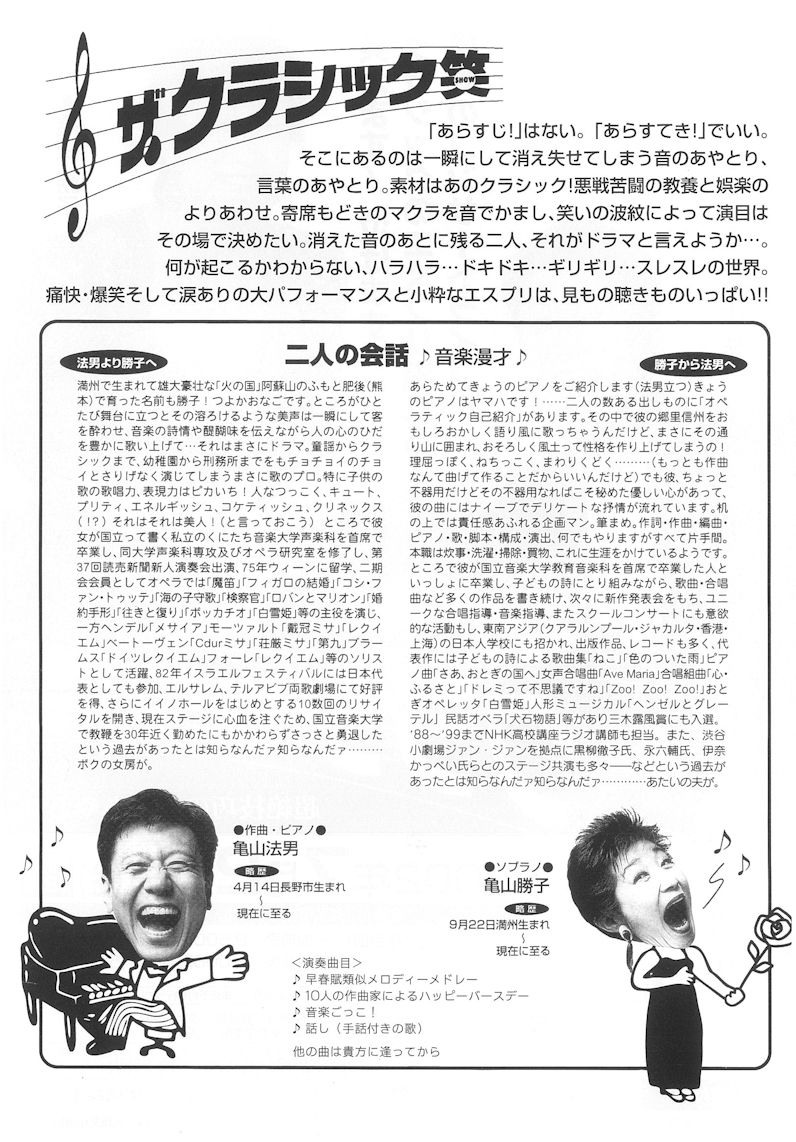 ザ・クラシック笑
SHOW
「あらすじ!」はない。「あらすてき!」でいい。
そこにあるのは一瞬にして消え失せてしまう音のあやとり、
言葉のあやとり。素材はあのクラシック!悪戦苦闘の教養と娯楽の
よりあわせ。寄席もどきのマクラを音でかまし、笑いの波紋によって演目は
その場で決めたい。消えた音のあとに残る二人、それがドラマと言えようか…。
何が起こるかわからない、ハラハラ…ドキドキ…ギリギリ…スレスレの世界。
痛快・爆笑そして涙ありの大パフォーマンスと小粋なエスプリは、見もの聴きものいっぱい!!
二人の会話 ♪音楽漫才♪
法男より勝子へ
満州で生まれて雄大豪壮な「火の国」阿蘇山のふもと肥後(熊
本)で育った名前も勝子!つよかおなごです。ところがひと
たび舞台に立つとその溶ろけるような美声は一瞬にして客
を酔わせ、音楽の詩情や醍醐味を伝えながら人の心のひだ
を豊かに歌い上げて…それはまさにドラマ。童謡からクラ
シックまで、幼稚園から刑務所までをもチョチョイのチョイ
とさりげなく演じてしまうまさに歌のプロ。特に子供の
歌の歌唱力、表現力はピカいち!人なつっこく、キュート、
プリティ、エネルギッシュ、コケティッシュ、クリネックス
(!?)それはそれは美人!(と言っておこう)ところで彼
女が国立って書く私立のくにたち音楽大学声楽科を首席で
卒業し、同大学声楽科専攻及びオペラ研究室を修了し、第
37回読売新聞新人演奏会出演、75年ウィーンに留学、二期
会会員としてオペラでは「魔笛」「フィガロの結婚」「コシ・フ
ァン・トゥッテ」「海の子守歌」「検察官」「ロバンとマリオン」「婚
約手形」「往きと復り」「ボッカチオ」「白雪姫」等の主役を演じ、
一方ヘンデル「メサイア」モーツァルト「戴冠ミサ」「レクイ
エム」ベートーヴェン「Cdurミサ」「荘厳ミサ」「第九」ブラー
ムス「ドイツレクイエム」フォーレ「レクイエム」等のソリス
トとして活躍、82年イスラエルフェスティバルには日本代
表としても参加、エルサレム、テルアビブ両歌劇場にて好評
を得、さらにイイノホールをはじめとする10数回のリサイ
タルを開き、現在ステージに心血を注ぐため、国立音楽大学
で教鞭を30年近く勤めたにもかかわらずさっさと勇退した
という過去があったとは知らなんだァ知らなんだァ………
ボクの女房が。
勝子から法男へ
あらためてきょうのピアノをご紹介します(法男立つ)きょう
のピアノはヤマハです!……二人の数ある出しものに「オペ
ラティック自己紹介」があります。その中で彼の郷里信州をお
もしろおかしく語り風に歌っちゃうんだけど、まさにその通
り山に囲まれ、おそろしく風土って性格を作り上げてしまうの!
理屈っぽく、ねちっこく、まわりくどく………(もっとも作曲
なんて曲げて作ることだからいいんだけど)でも彼、ちょっと
不器用だけどその不器用なればこそ秘めた優しい心があって、
彼の曲にはナイーブでデリケートな抒情が流れています。机
の上では責任感あふれる企画マン。筆まめ。作詞・作曲・編曲・
ピアノ・歌・脚本・構成・演出、何でもやりますがすべて片手間。
本職は炊事・洗濯・掃除・買物、これに生涯をかけているようです。
ところで彼が国立音楽大学教育音楽科を首席で卒業した人と
いっしょに卒業し、子どもの詩にとり組みながら、歌曲・合唱
曲など多くの作品を書き続け、次々に新作発表会をもち、ユニ
ークな合唱指導・音楽指導、またスクールコンサートにも意欲
的な活動もし、東南アジア(クアラルンプール・ジャカルタ・香港・
上海)の日本人学校にも招かれ、出版作品、レコードも多く、代
表作には子どもの詩による歌曲集「ねこ」「色のついた雨」ピア
ノ曲「さあ、おとぎの国へ」女声合唱曲「Ave Maria」合唱組曲「心・
ふるさと」「ドレミって不思議ですね」「Zoo! Zoo! Zoo!」おと
ぎオペレッタ「白雪姫」人形ミュージカル「ヘンゼルとグレー
テル」民話オペラ「犬石物語」等があり三木露風賞にも入選。
'88〜'99までNHK高校講座ラジオ講師も担当。また、渋谷
小劇場ジャン・ジャンを拠点に黒柳徹子氏、永六輔氏、伊奈
かっぺい氏らとのステージ共演も多々――などという過去が
あったとは知らなんだァ知らなんだァ…………あたいの夫が。
●作曲・ピアノ●
亀山法男
略歴
4月14日長野市生まれ
〜
現在に至る
●ソプラノ●
亀山勝子
略歴
9月22日満州生まれ
〜
現在に至る
<演奏曲目>
♪ 早春賦類似メロディーメドレー
♪ 10人の作曲家によるハッピーバースデー
♪ 音楽ごっこ!
♪ 話し(手話付きの歌)
他の曲は貴方に逢ってから